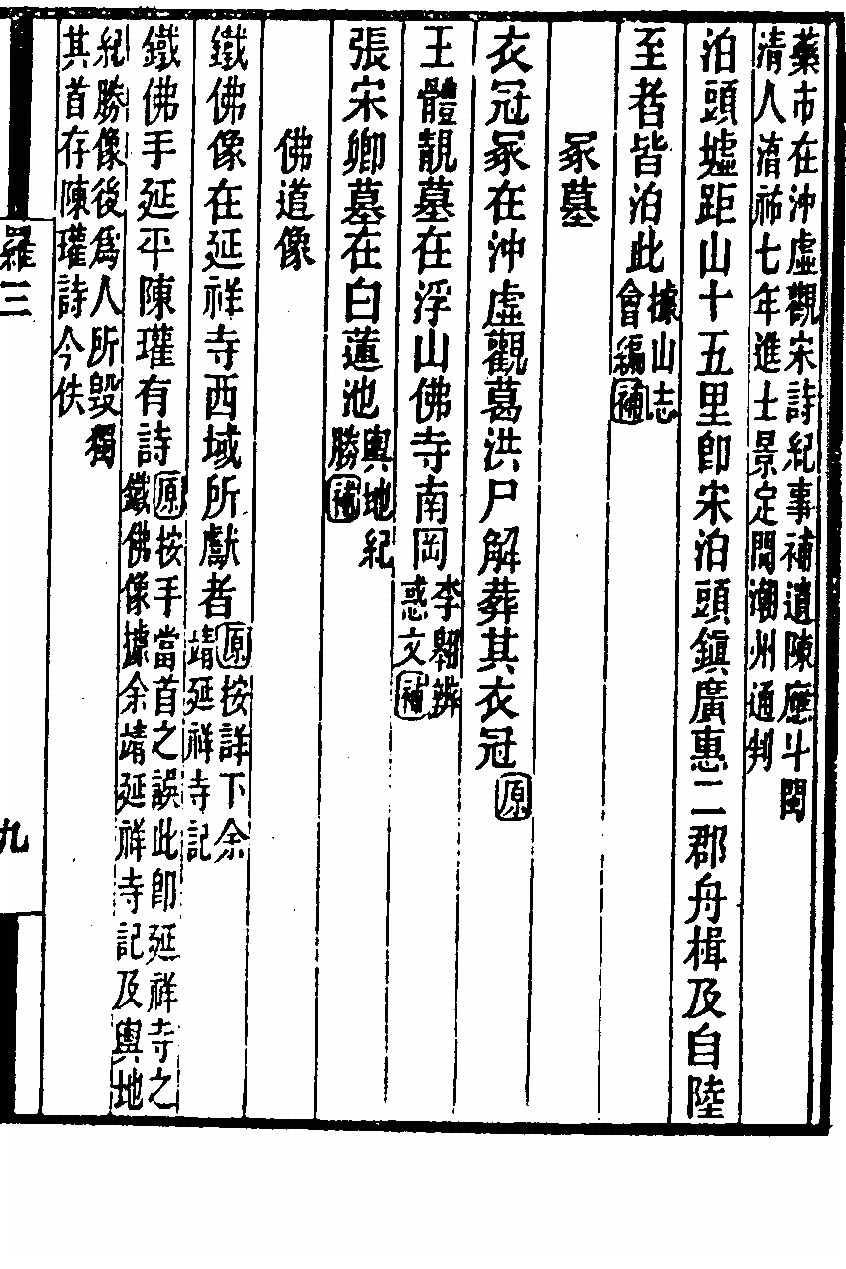 藥市在沖虛觀宋詩紀事補遺陳應斗閩
清人淯祐七年進士景定間潮州通判
泊頭墟距山十五里卽宋泊頭鎮廣惠二郡舟楫及自陸
至者皆泊此據山志
會編補
冢墓
衣冠冢在沖虛觀葛洪尸解葬其衣冠原
王體靚墓在浮山佛寺南岡李翱辨
惑文補
張宋卿墓在白蓮池輿地紀
勝補
佛道像
鐵佛像在延祥寺西域所獻者原按詳下余
靖延祥寺記
鐵佛手延平陳瓘有詩原按手當首之誤此卽延祥寺之
鐵佛像據余靖延祥寺記及輿地
紀勝像後爲人所毀獨
其首存陳瓘詩今佚
羅三
九